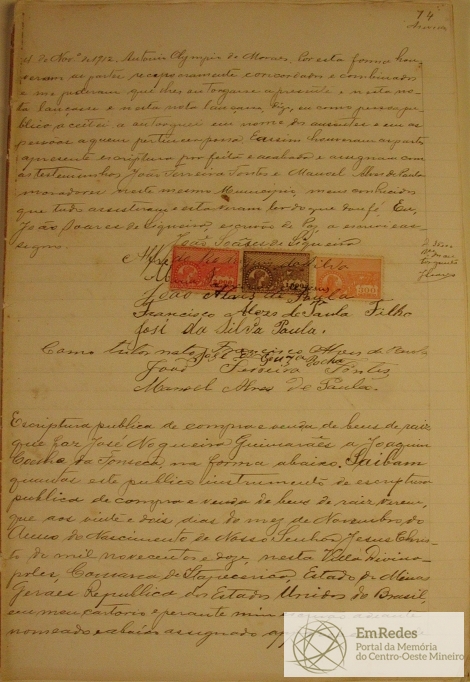 74
de Nov.º de 1912. Antonio Olympio de Moraes. Por esta forma hou-
veram as partes reciprocamente concordados e combinados
e me pediram que lhes outorgasse a presente e nesta no-
ta lançasse e nesta nota lançam, digo, eu como pessoa pu-
blica aceitei a outorguei em nome dos ausentes e em as
pessoas a quem pertencer possa. E assim houveram as partes
a presente escriptura por feita e acabada e assignam com
as testemunhas João Ferreira Pontes e Manoel Alves de Paula
moradores neste mesmo Municipio, meus conhecidos
que tudo assistiram e esta ouviram ler do que dou fé. Eu,
João Soares de Siqueira, escrivão de Paz a escrevi e as-
signo.
João Soares de Siqueira
da Silva
João Alves de Paula
Francisco Alves de Paula Filho
José da Silva Paula.
Como tutor nato Francisco Alves de Paula
Rocha
João Ferreira Pontes
Manoel Alves de Paula.
Escriptura publica de compra e venda de bens de raiz
que faz José Nogueira Guimarães a Joaquim
Coelho da Fonseca, na forma abaixo. Saibam
quantos este publico instrumento de escriptura
publica de compra e venda de bens de raiz virem,
que aos vinte e dois dias do mez de Novembro, do
Anno do Nascimento de Nosso Senhor Jesus Chris-
to de mil novecentos e doze, nesta Villa Divino-
poles, Comarca de Itapecerica, Estado de Minas
Geraes Republica dos Estados Unidos do Brasil,
em meu cartorio e perante mim escrivão adeante
nomeado e abaixo assignado
EmRedes
Portal da Memória
do Centro-Oeste Mineiro